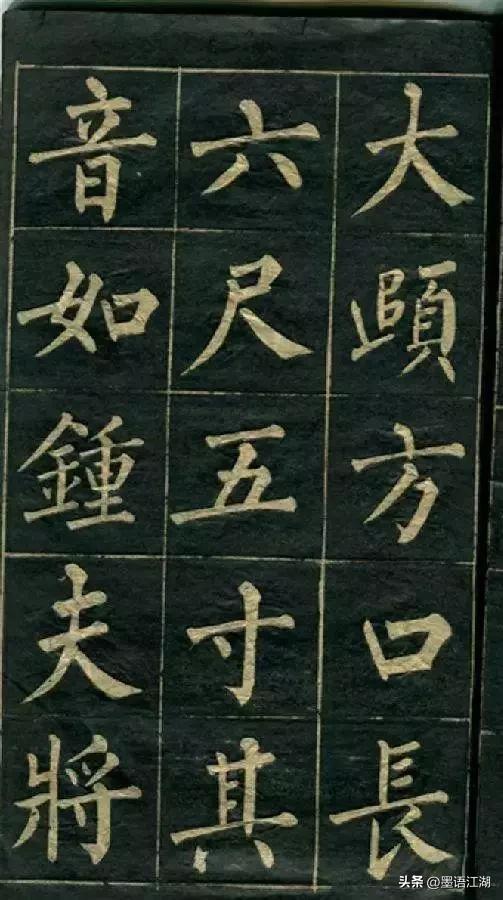 大頤方口長
六尺五寸其
音如鍾夫將
头条 @墨语江湖